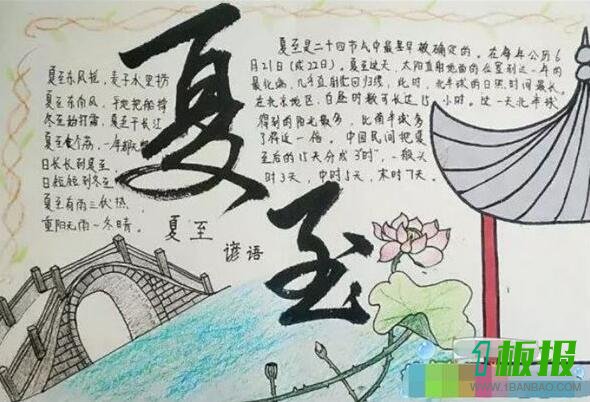 夏至
夏至是二十四节气中最早被确定的。在每年公历6
月21日(或22日)。夏至这天,太阳直射地面的位置到达一年的
最北端,几乎直射北回归线,此时,北半球的日照时间最长。
在北京地区,白昼时数可长达15小时。这一天北半球
得到的阳光最多,比南半球多
了将近一倍。中国民间把夏
至后的15天分成3"时",一般头
时3天,中时5天,末时7天。
夏至东风摇,麦子水里捞
夏至东南风,
冬至始打霜,夏至干长江
夏至
日长长到夏至
日短短到冬至
夏至有雨三伏热,
重阳无雨一冬晴。
夏至
谚语
1板报
WWW.1BANBAO.COM